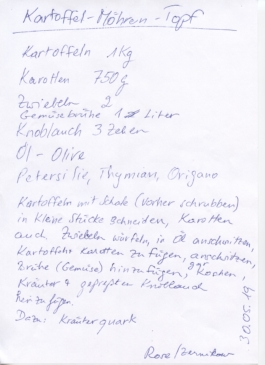 Kartoffel-Möhren-Topf
Kartoffeln 1 Kg
Karotten 750g
Zwiebeln 2
Gemüsebrühe 1 Liter
Knoblauch 3 Zehen
Öl - Olive
Petersilie, Thymian, Origano
Kartoffeln mit Schale (vorher schrubben)
in kleine Stücke schneiden, Karotten
auch, Zwiebeln würfeln, in Öl anschwitzen,
Kartoffeln Karotten zufügen, anschwitzen,
Brühe (Gemüse) hinzufügen, kochen,
Kräuter & gepreßten Knoblauch
hinzufügen.
Dazu: Kräuterquark
30.05.19
Rose/